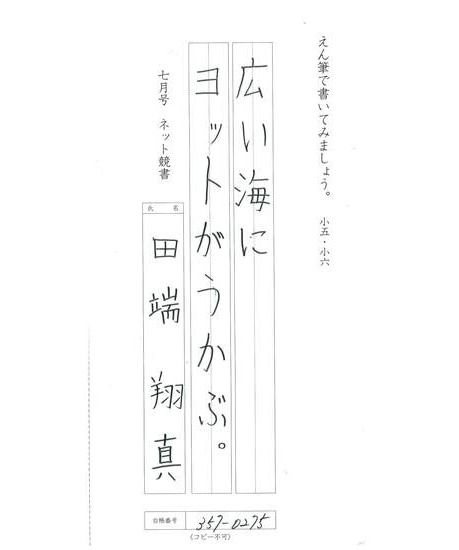 えん筆で書いてみましょう。 小五・小六
広い海に
ヨットがうかぶ。
七月号 ネット競書
氏 名
田端 翔真
会員番号 357-0275
(コピー不可)